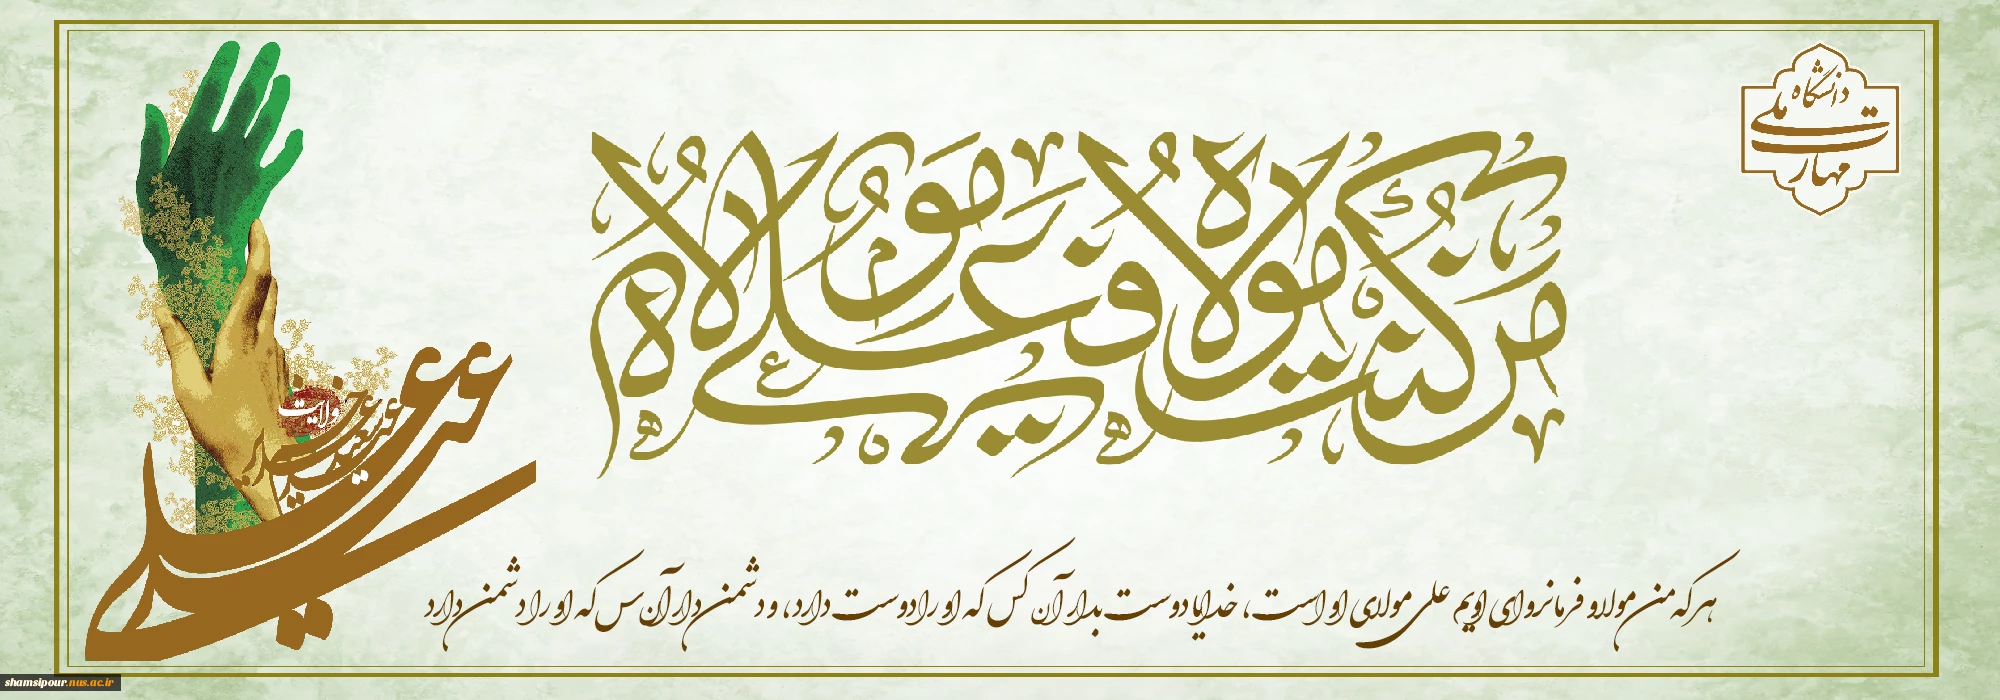 دانشگاه ملی
مهارت
من کنت مولاه فهذا علی مولاه
ولایت
عید غدیر
علی
هر که من مولا و فرمانروای اویم علی مولای او است، خدایا دوست بدار آن کس که او را دوست دارد، و دشمن دار آن س که او را دشمن دارد
shamsipour.nus.ac.ir